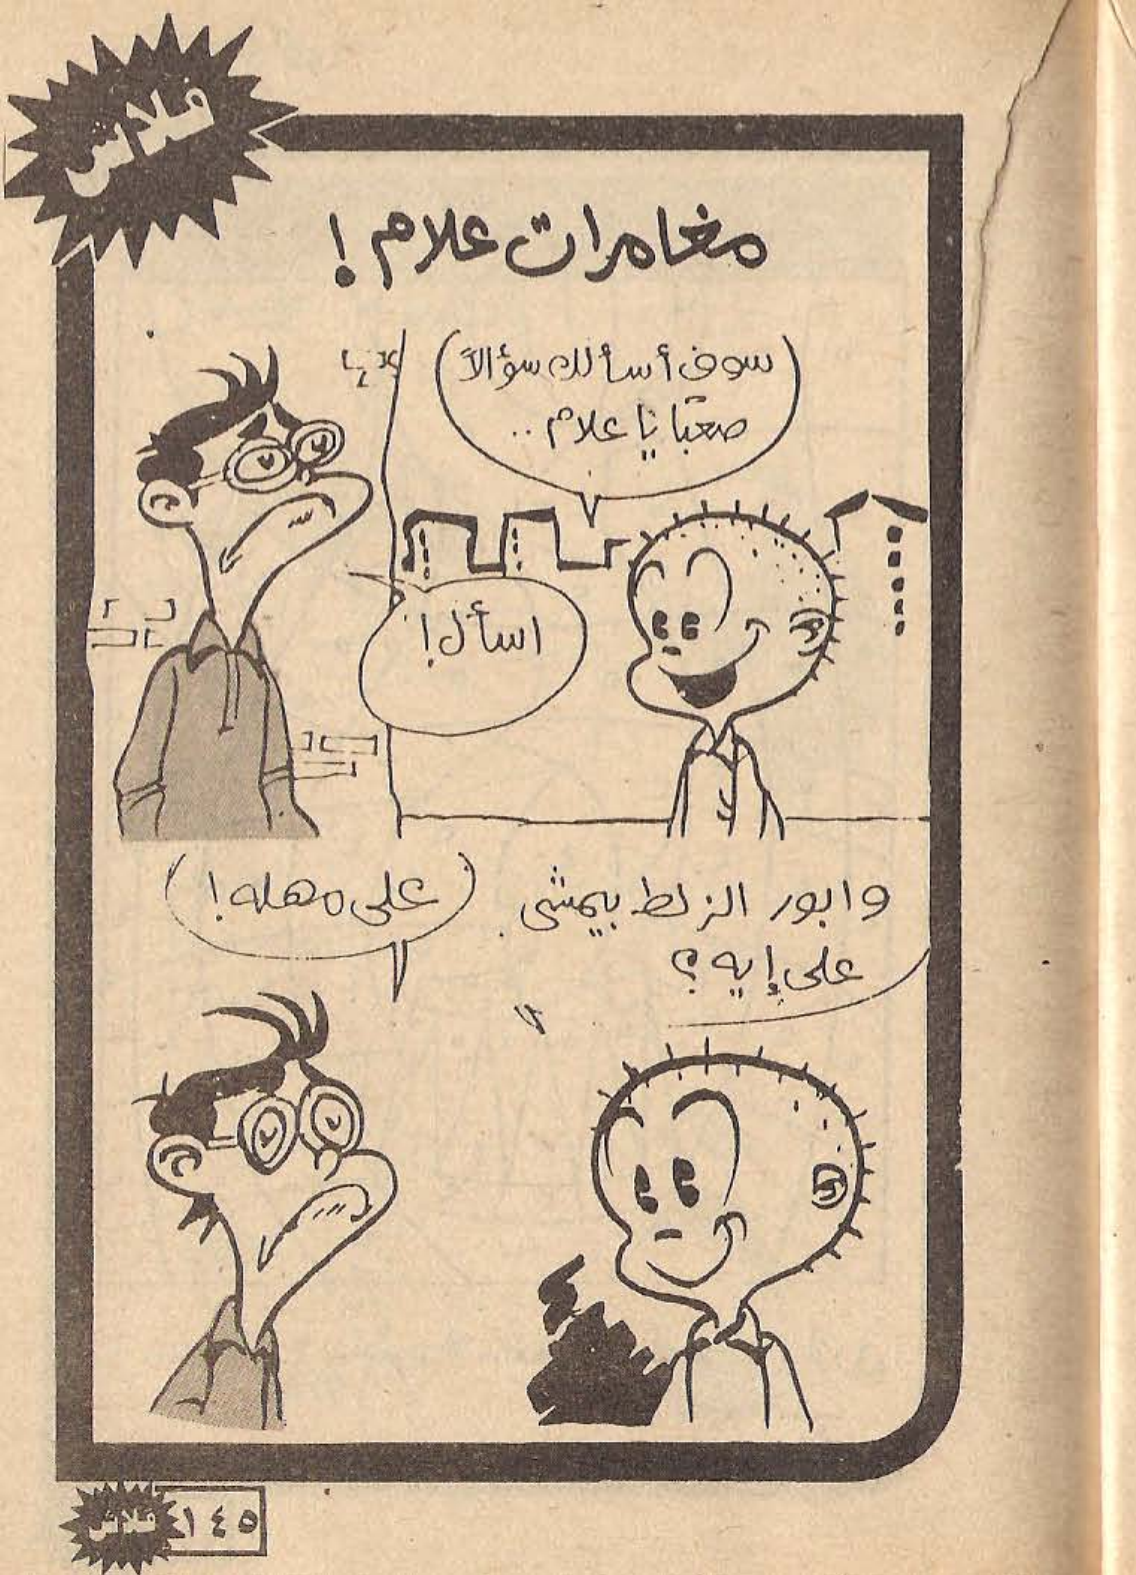 فلاش
مغامرات علام !
سوف أسألك سؤالاً
صعبًا يا علام ..
اسأل !
وابور الزلط بيمشى
على إيه ؟
على مهله !
فلاش
١٤٥